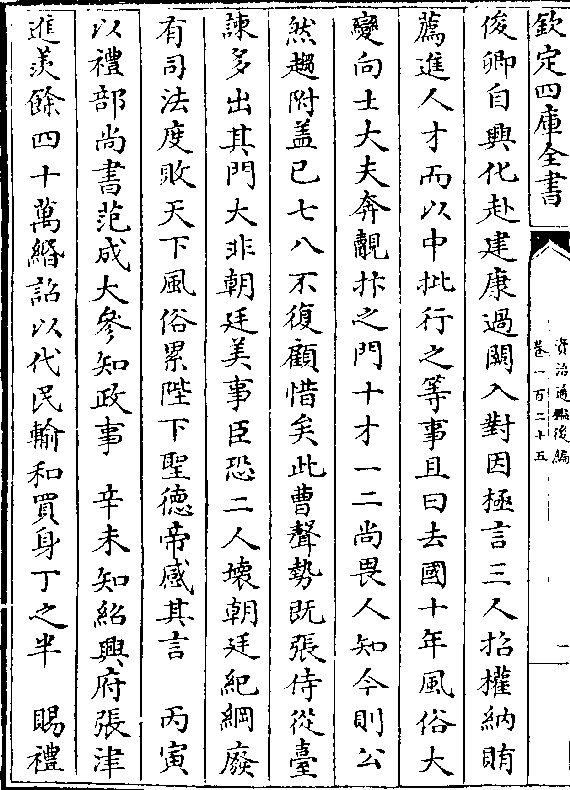 欽定四庫全書
資治通鑑後編
卷一百二十五
一
俊卿自興化赴建康過闕入對因極言三人招權納賄
薦進人才而以中批行之等事且曰去國十年風俗大
變向士大夫奔覿抃之門十才一二尚畏人知今則公
然趨附盖已七八不復顧惜矣此曹聲勢既張侍從臺
諫多出其門大非朝廷美事臣恐二人壞朝廷紀綱廢
有司法度敗天下風俗累陛下聖德帝感其言　丙寅
以禮部尚書范成大參知政事　辛未知紹興府張津
進羨餘四十萬緡詔以代民輸和買身丁之半　賜禮